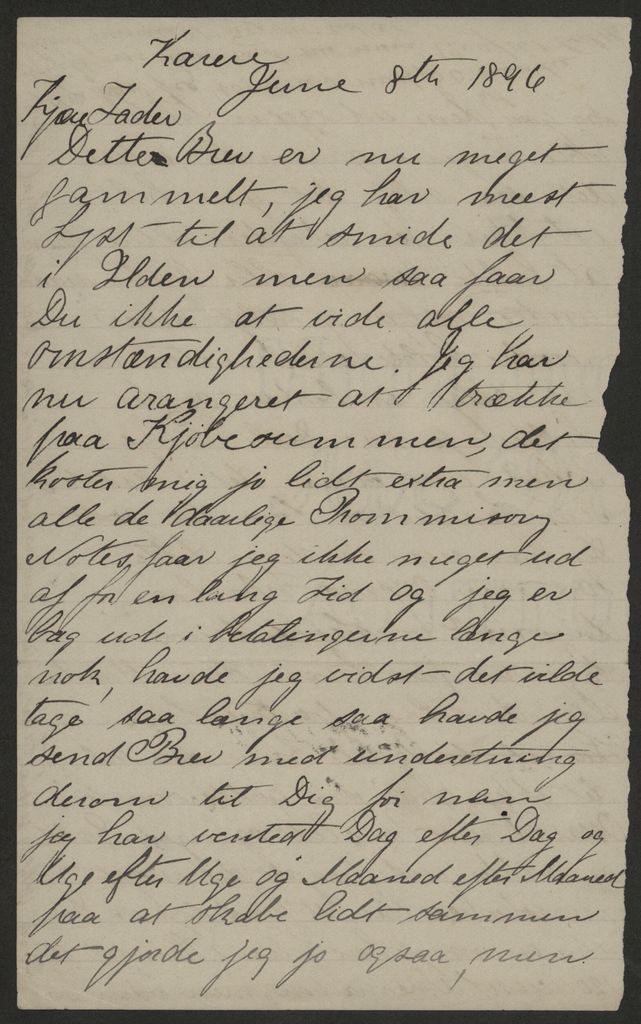 Karere
June 8th 1896
Kjære Fader
Dette Brev er nu meget
gammelt, jeg har meest
Lyst til at smide det
i Ilden men saa faar
Du ikke at vide alle
omstændighederne. Jeg har
nu arangeret at trække
paa Kjøbesummen, det
koster mig jo lidt extra men
alle de daarlige Prommisory
Notes faar jeg ikke meget ud
af for en lang Tid og jeg er
bag ude i betalingerne længe
nok, havde jeg vidst det vilde
tage saa længe saa havde jeg
send Brev med underetning
derom til Dig før men
jeg har ventedt Dag efter Dag og
Uge efter Uge og Maaned efter Maaned
paa at skabe lidt sammen
det gjorde jeg jo ogsaa, men